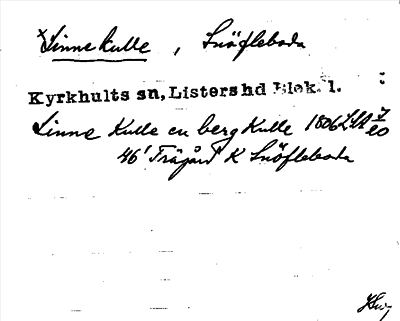 × Linne kulle, Snöfleboda
Kyrkhults sn, Listers hd Blek. l.
Linne Kulle en berg Kulle 1806 LSA 7/20
46' Trägård K Snöfleboda